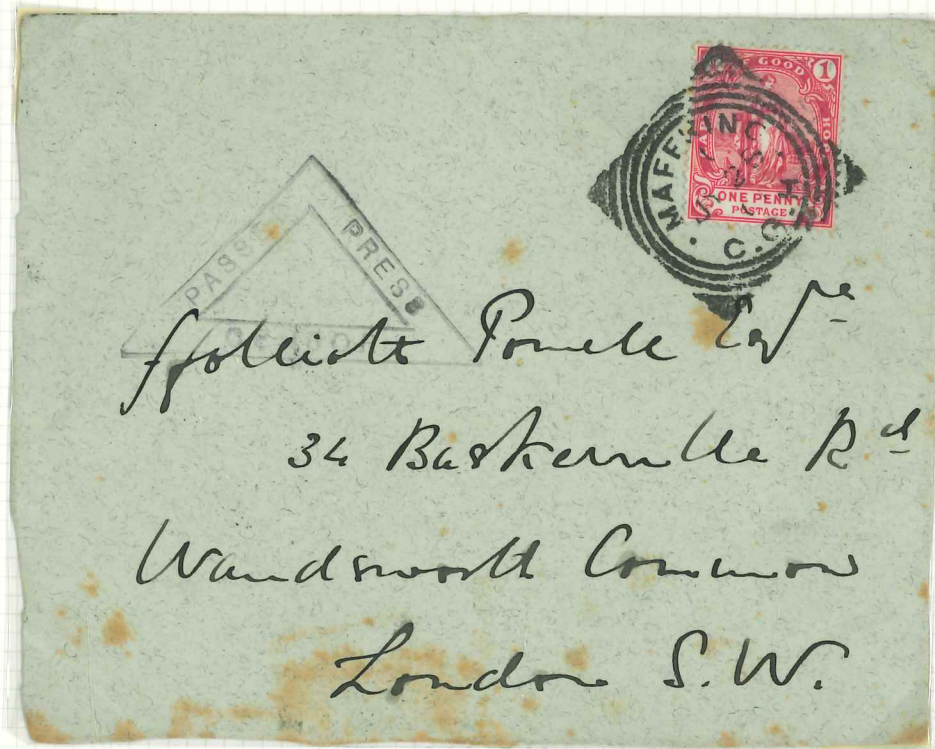 GOOD HO
1
ONE PENNY
POSTAGE
MAFEKING
C.G.H
PASSED
PRESS
CENSOR
ffolliott Powell Esqre
34 Baskerville Rd
Wandsworth Common
London S.W.